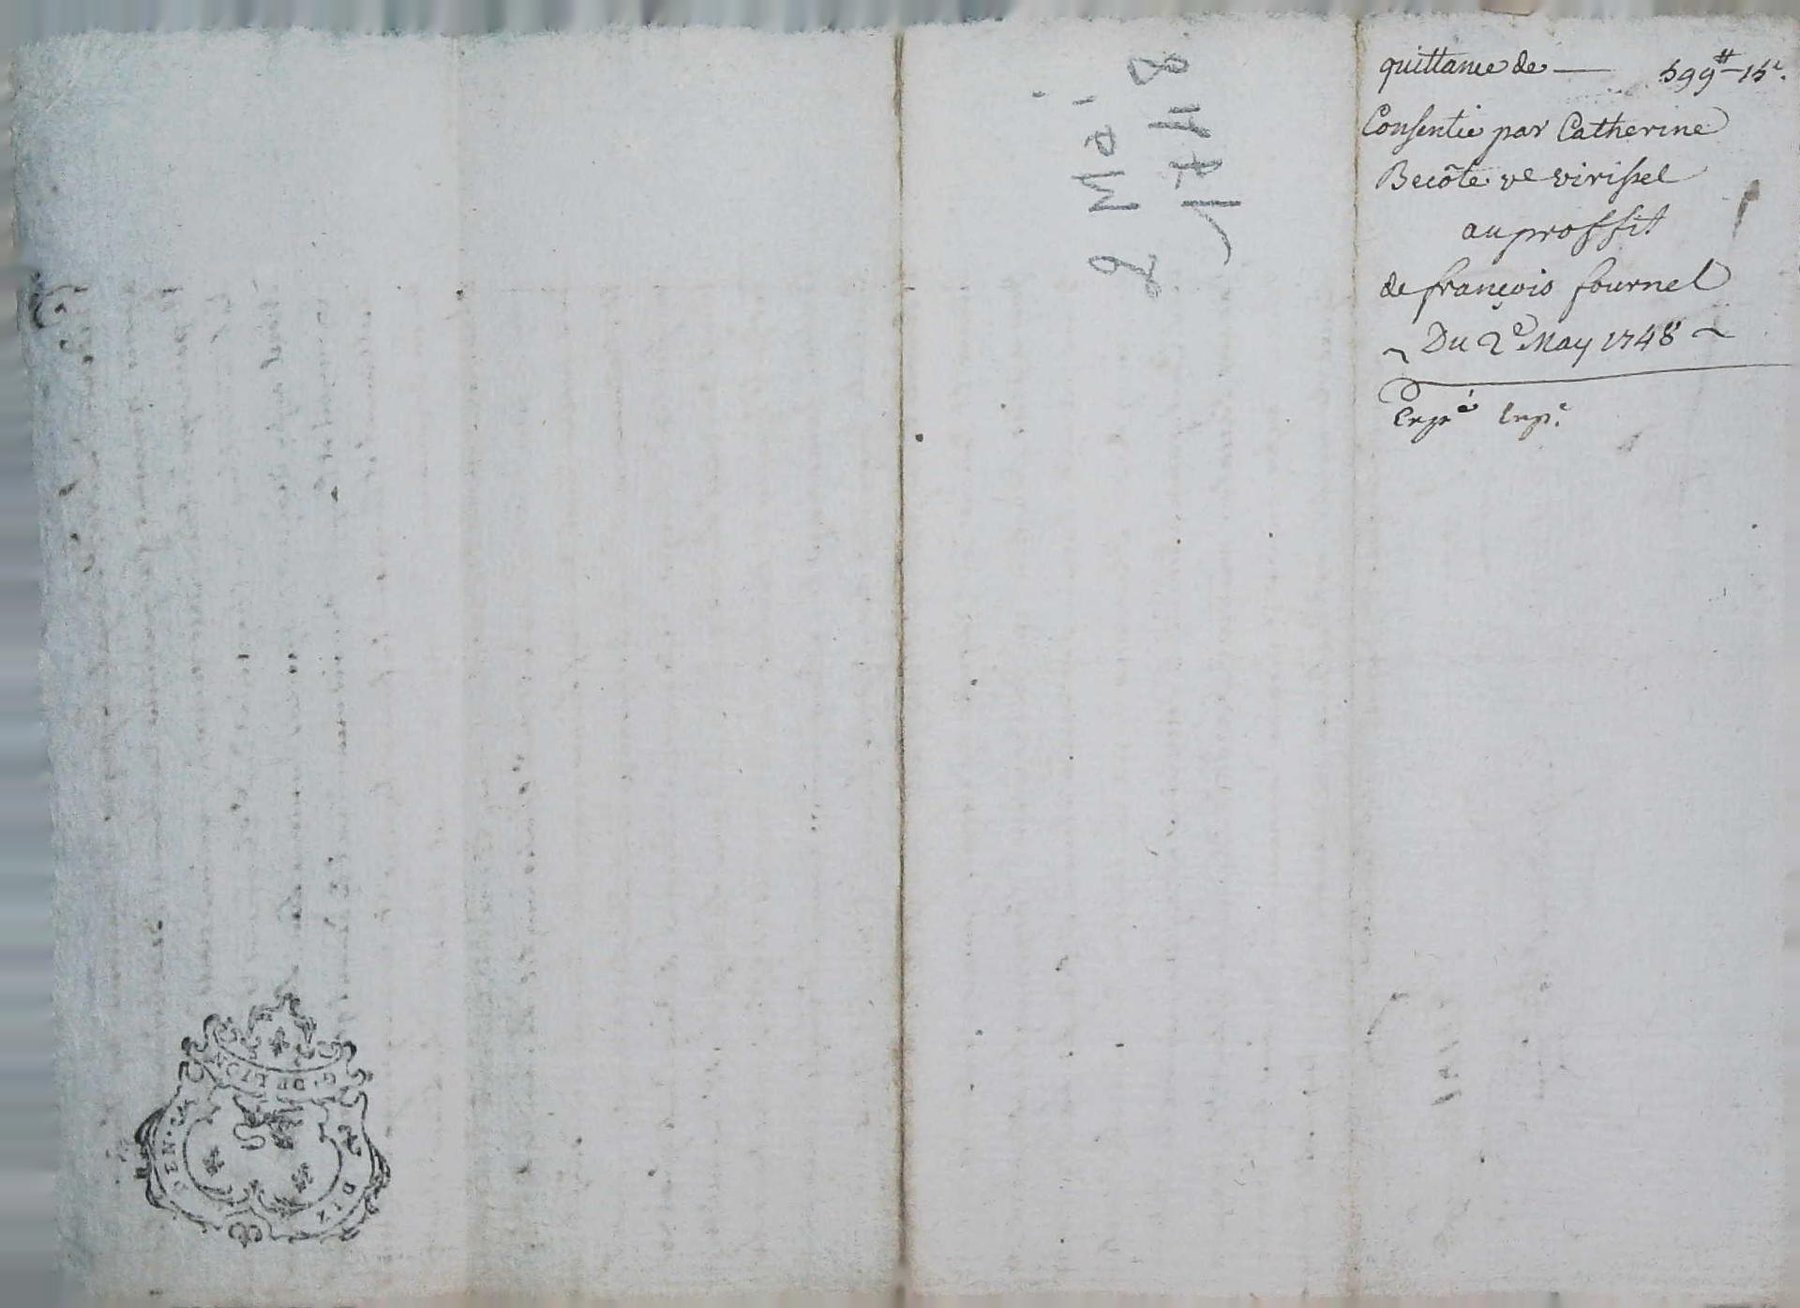 quittance de — 599# 15s.
Consentie par Catherine
Becôte ve virissel
au proffit
de françois fournel
~ Du 2e May 1748 ~
Expé Exp.e
2 Mai
1748
G DE LYON
DEN. DIX